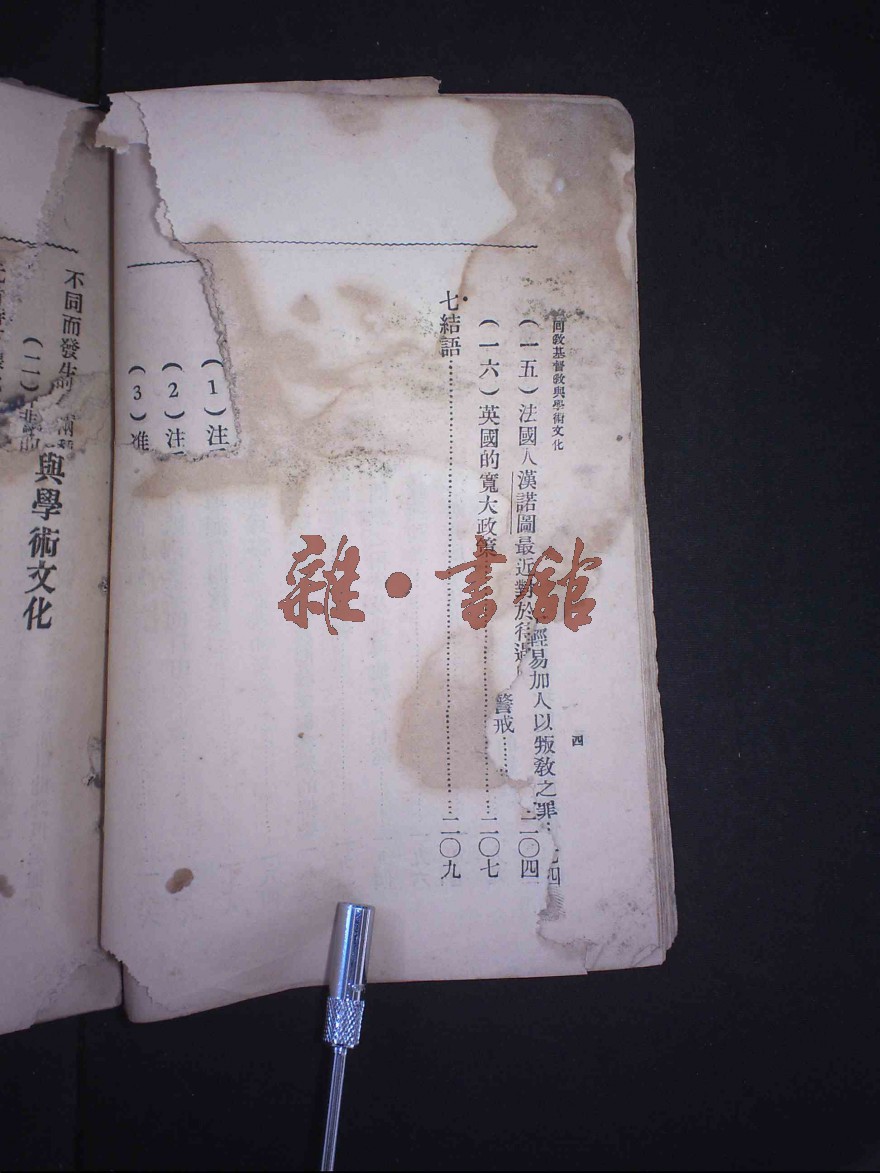 回教基督教與學術文化
四
（一五）法國人漢諾圖最近對於
警戒……二〇四
輕易加人以叛教之罪
（一六）英國的寬大政策……二〇七
七結語……二〇九
（1）注
（2）注
（3）准
不同而發生
（二）
與學術文化
雜·書館